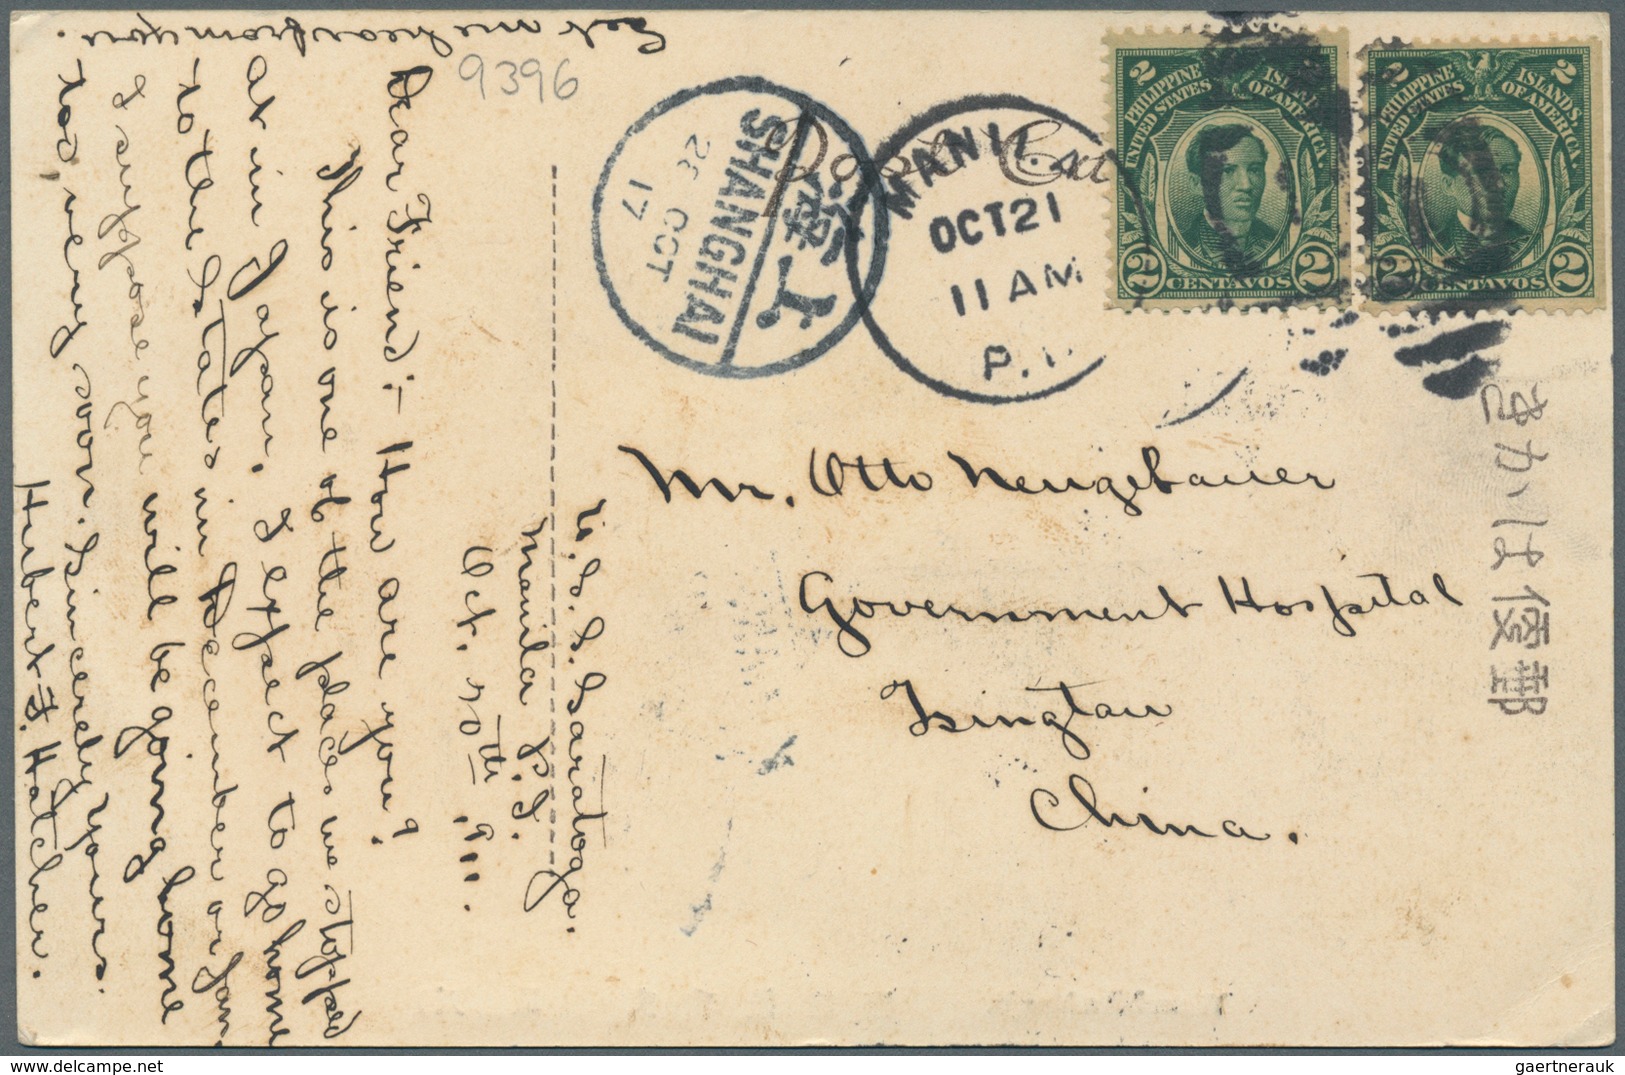 Let me hear from you.
9396
U.S.S. Saratoga.
Manila P.I.
Oct. 20th, '11.
Dear Friend:- How are you?
This is one of the places we stopped
at in Japan. I expect to go home
to the States in December or Jan.
I suppose you will be going home
too, very soon. Sincerely Yours.
Hubert F. Hatcher.
Post Ca
SHANGHAI
上海
28 OCT
17
MANILA
OCT 21
11 AM
P.I.
2 2
PHILIPPINE ISLANDS
UNITED STATES OF AMERICA
2 CENTAVOS 2
2 2
PHILIPPINE ISLANDS
UNITED STATES OF AMERICA
2 CENTAVOS 2
Mr. Otto Neugebauer
Government Hospital
Tsingtau
China.
郵便はかき
gaertnerauk